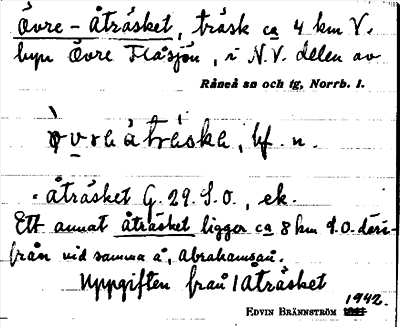 Övre-Åträsket, träsk ca 4 km V.
byn Övre Flåsjön, i N.V. delen av
Råneå sn och tg, Norrb. l.
bf. n.
Åträsket G. 29. S.O., ek.
Ett annat Åträsket ligger ca 8 km S.O. däri-
från vid samma å, Abrahamsån.
Uppgiften från Åträsket
1942.
EDVIN BRÄNNSTRÖM